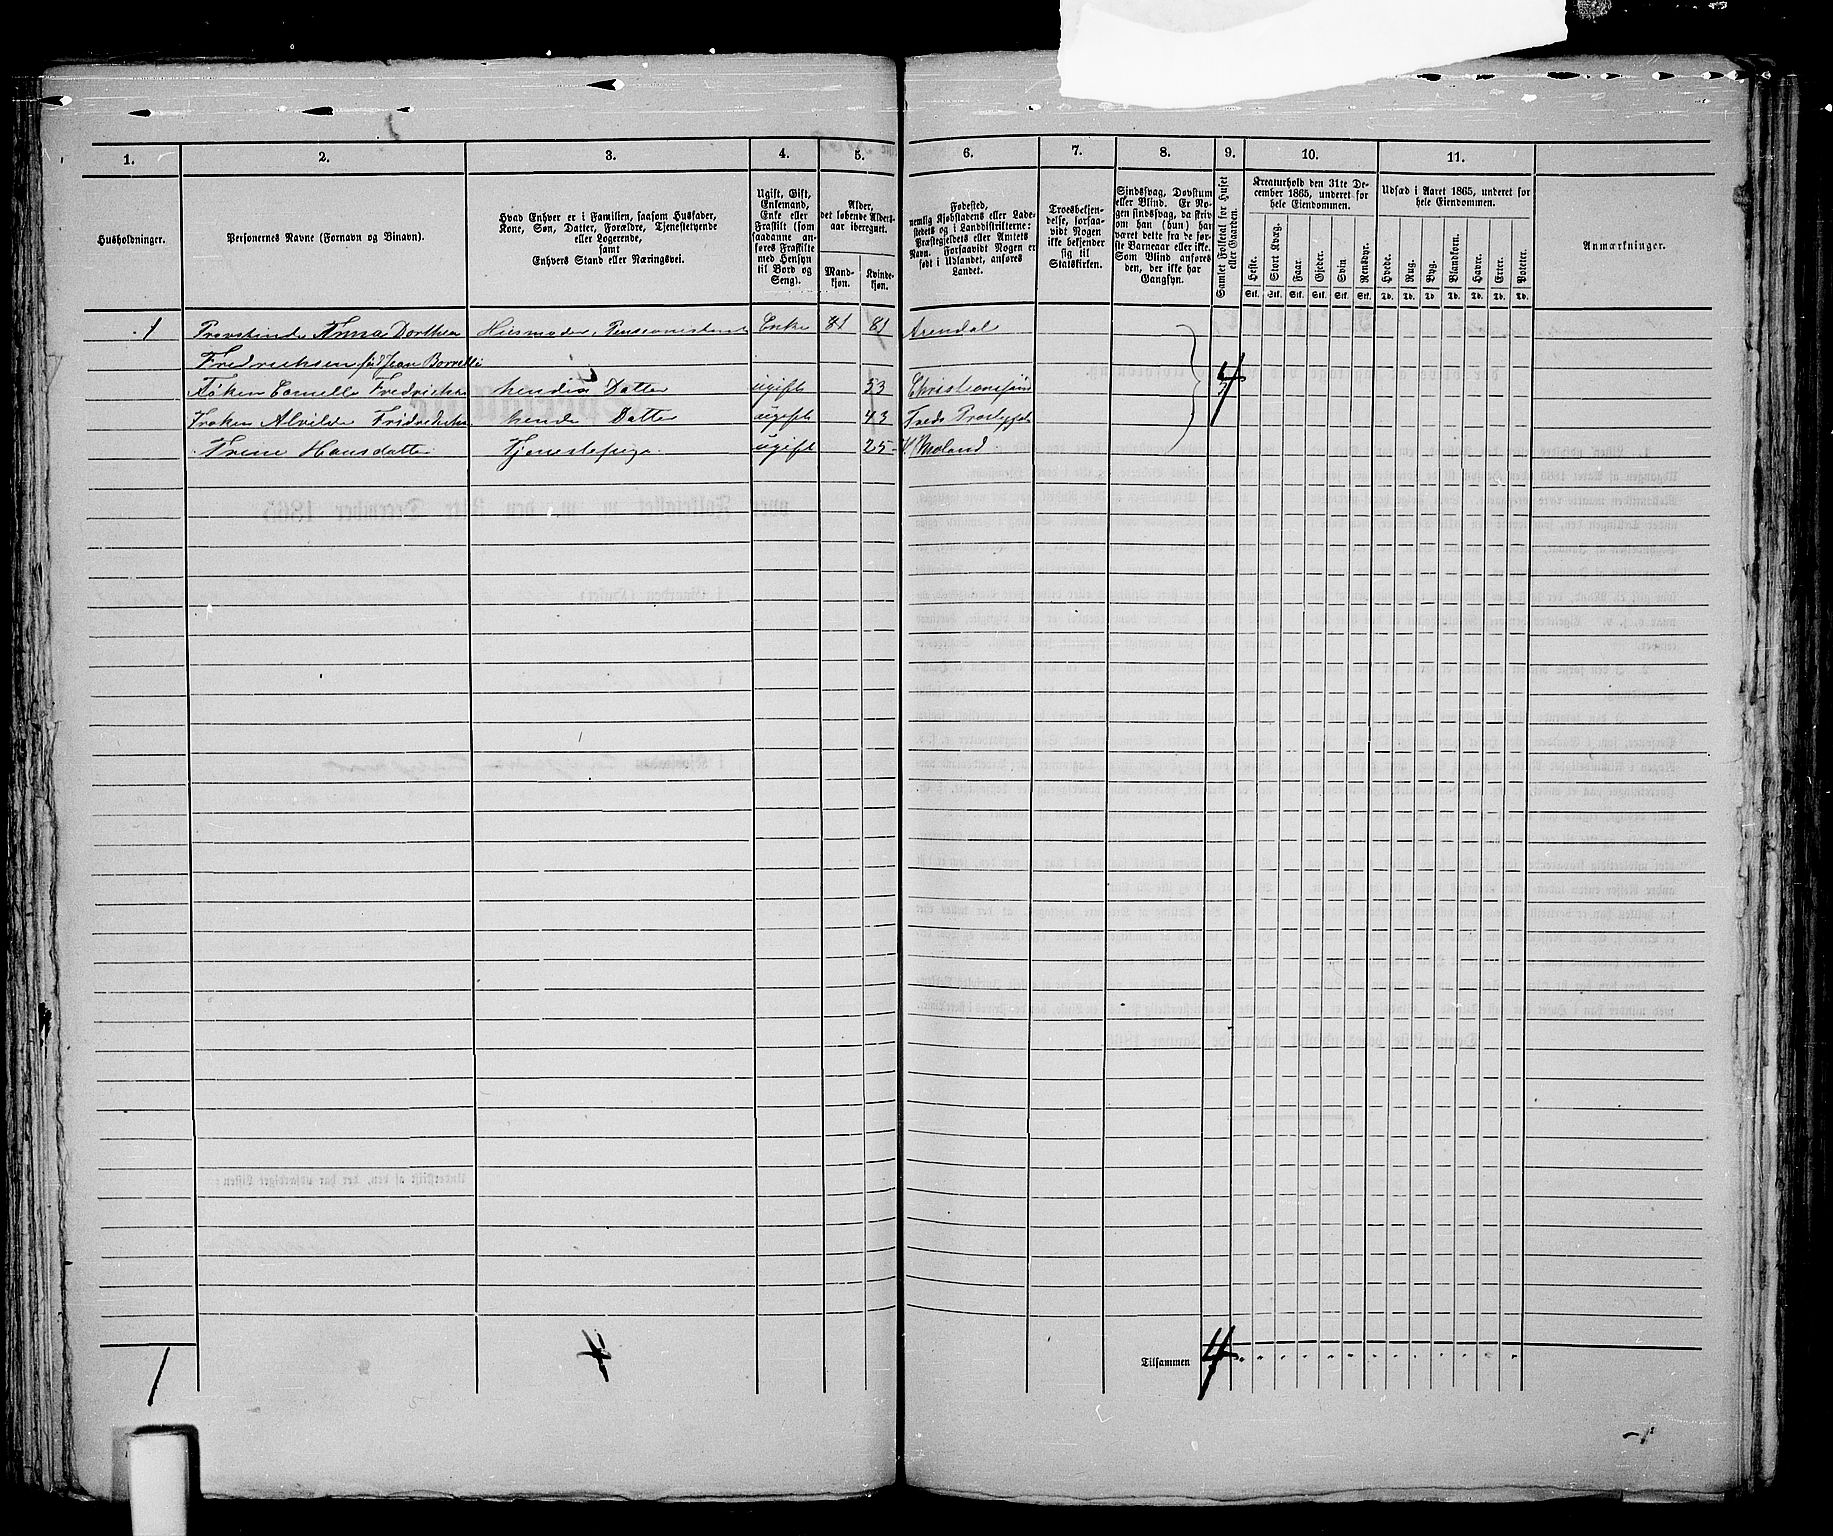 1. 2. 3. 4. 5. 6. 7. 8. 9. 10. 11.
Husholdninger.
Personernes Navne (Fornavn og Binavn).
Hvad Enhver er i Familien, saasom Husfader,
Kone, Søn, Datter, Forældre, Tjenestetyende
eller Logerende,
samt
Enhvers Stand eller Næringsvei.
Ugift, Gift,
Enkemand,
Enke eller
Fraskilt (som
saadanne an-
føres Fraskilte
med Hensyn
til Bord og
Seng).
Alder,
det løbende Alders-
aar iberegnet.
Mand-
kjøn.
Kvinde-
kjøn.
Fødested,
nemlig Kjøbstadens eller Lade-
stedets og i Landdistrikterne:
Præstegjeldets eller Amtets
Navn. Forsaavidt Nogen er
født i Udlandet, anføres
Landet.
Troesbekjen-
delse, forsaa-
vidt Nogen
ikke bekjender
sig til
Statskirken.
Sindssvag, Døvstum
eller Blind. Er No-
gen sindssvag, da skriv
om han (hun) har
været dette fra de før-
ste Barneaar eller ikke.
Som Blind anføres
den, der ikke har
Gangsyn.
Samlet Folketal for Huset
eller Gaarden.
Kreaturhold den 31te De-
cember 1865, underet for
hele Eiendommen.
Heste. Stort Kvæg. Faar. Gjeder. Svin Rensdyr.
Stk. Stk. Stk. Stk. Stk. Stk.
Udsæd i Aaret 1865, underet for
hele Eiendommen.
Hvede. Rug. Byg. Blandkorn. Havre. Erter. Poteter.
Td. Td. Td Td. Td. Td. Td.
Anmærkninger.
1 Provstinde Anna Dorthea Huusmoder, Pensionist Enke 81 81 Arendal
Fredriksen født Jean 4
Frøken Fredriksen Datter ugift 53 Christianssund
Frøken Alvilde Fredriksen hende Datter ugift 43
Trine Hansdatter Tjenestepige ugift 25
1 4 Tilsammen 4